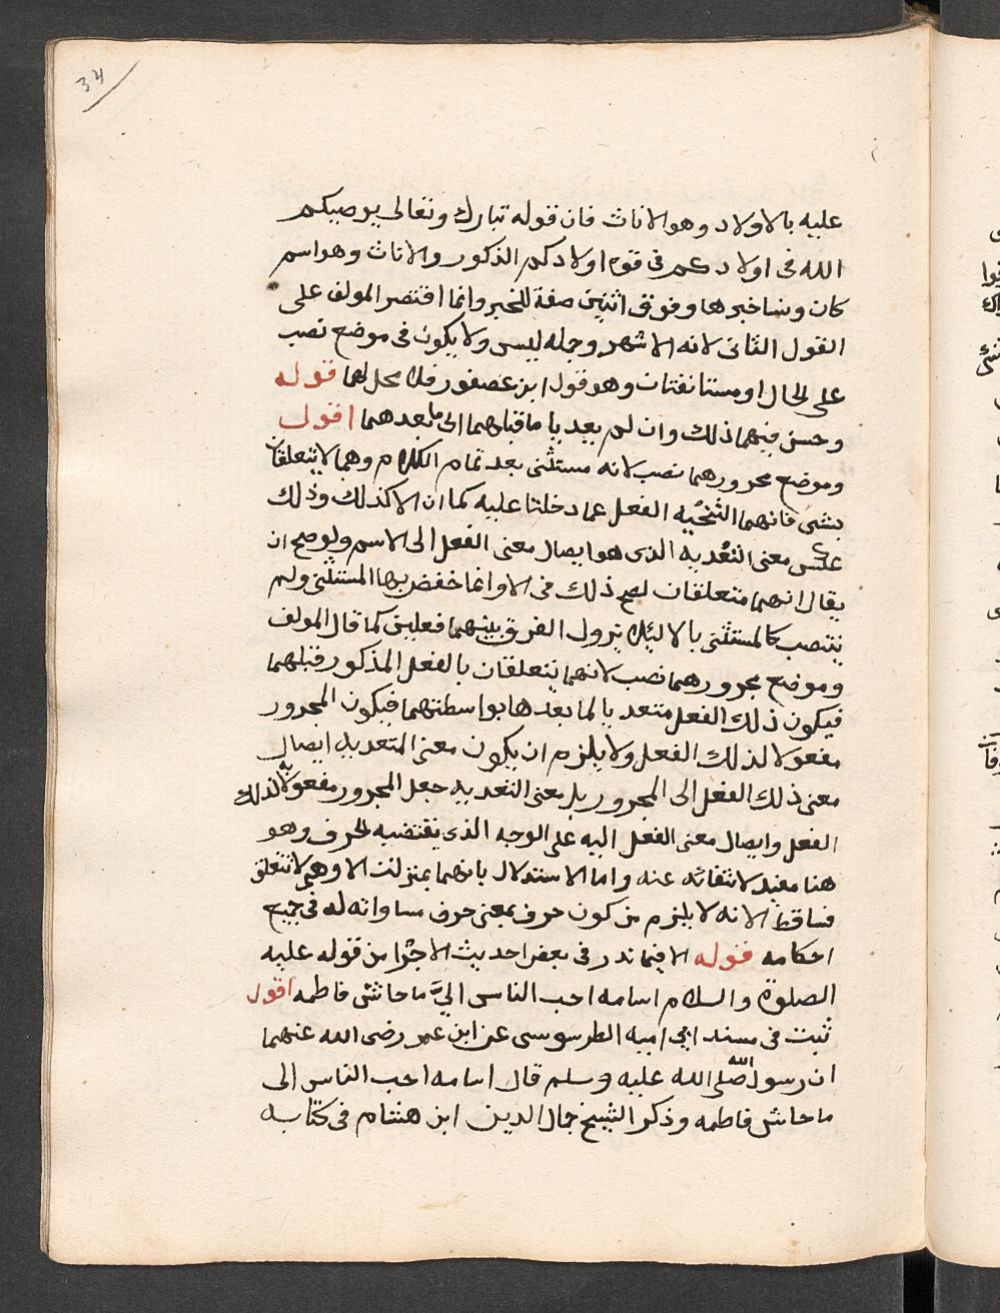 34
عليه بالاولاد وهو الاناث فان قوله تبارك وتعالى يوصيكم
الله فى اولادكم فى قوة اولادكم الذكور والاناث وهو اسم
كان ونسا خبرها وفوق اثنتين صفة للخبر وانما اقتصر المولف على
القول الثانى لانه الاشهر وجمله ليس ولا يكون فى موضع نصب
على الحال او مستانفتان وهو قول ابن عصفور فلا محل لهما قوله
وحسن فيهما ذلك وان لم يعديا ما قبلهما الى ما بعدهما اقول
وموضع مجرورهما نصب لانه مستثنى بعد تمام الكلام وهما لا يتعلقان
بشى فانهما لتنحيه الفعل عما دخلتا عليه كما ان الا كذلك وذلك
عكس معنى التعديه الذى هو ايصال معنى الفعل الى الاسم ولو صح ان
يقال انهما متعلقان لصح ذلك فى الا وانما خفض بهما المستثنى ولم
ينتصب كالمستثنى بالا ليلا يزول الفرق بينهما فعلين كما قال المولف
وموضع مجرورهما نصب لانهما يتعلقان بالفعل المذكور قبلهما
فيكون ذلك الفعل متعديا لما بعدها بواسطتهما فيكون المجرور
مفعولا لذلك الفعل ولا يلزم ان يكون معنى المتعديه ايصال
معنى ذلك الفعل الى المجرور بل معنى التعديه جعل المجرور مفعولا به لذلك
الفعل وايصال معنى الفعل اليه على الوجه الذى يقتضيه الحرف وهو
هنا مفيد لانتفائه عنه واما الاستدلال بانهما بمنزلت الا وهى لا تتعلق
فساقط لانه لا يلزم من كون حرف بمعنى حرف مساواته له فى جميع
احكامه قوله الا فيما ندر فى بعض احديث الاجزا من قوله عليه
الصلوة والسلام اسامه احب الناس الىّ ما حاشى فاطمه اقول
ثبت فى مسند ابى اميه الطرسوسى عن ابن عمر رضى الله عنهما
ان رسول الله صلى الله عليه وسلم قال اسامه احب الناس الى
ما حاشى فاطمه وذكر الشيخ جمال الدين ابن هشام فى كتابه